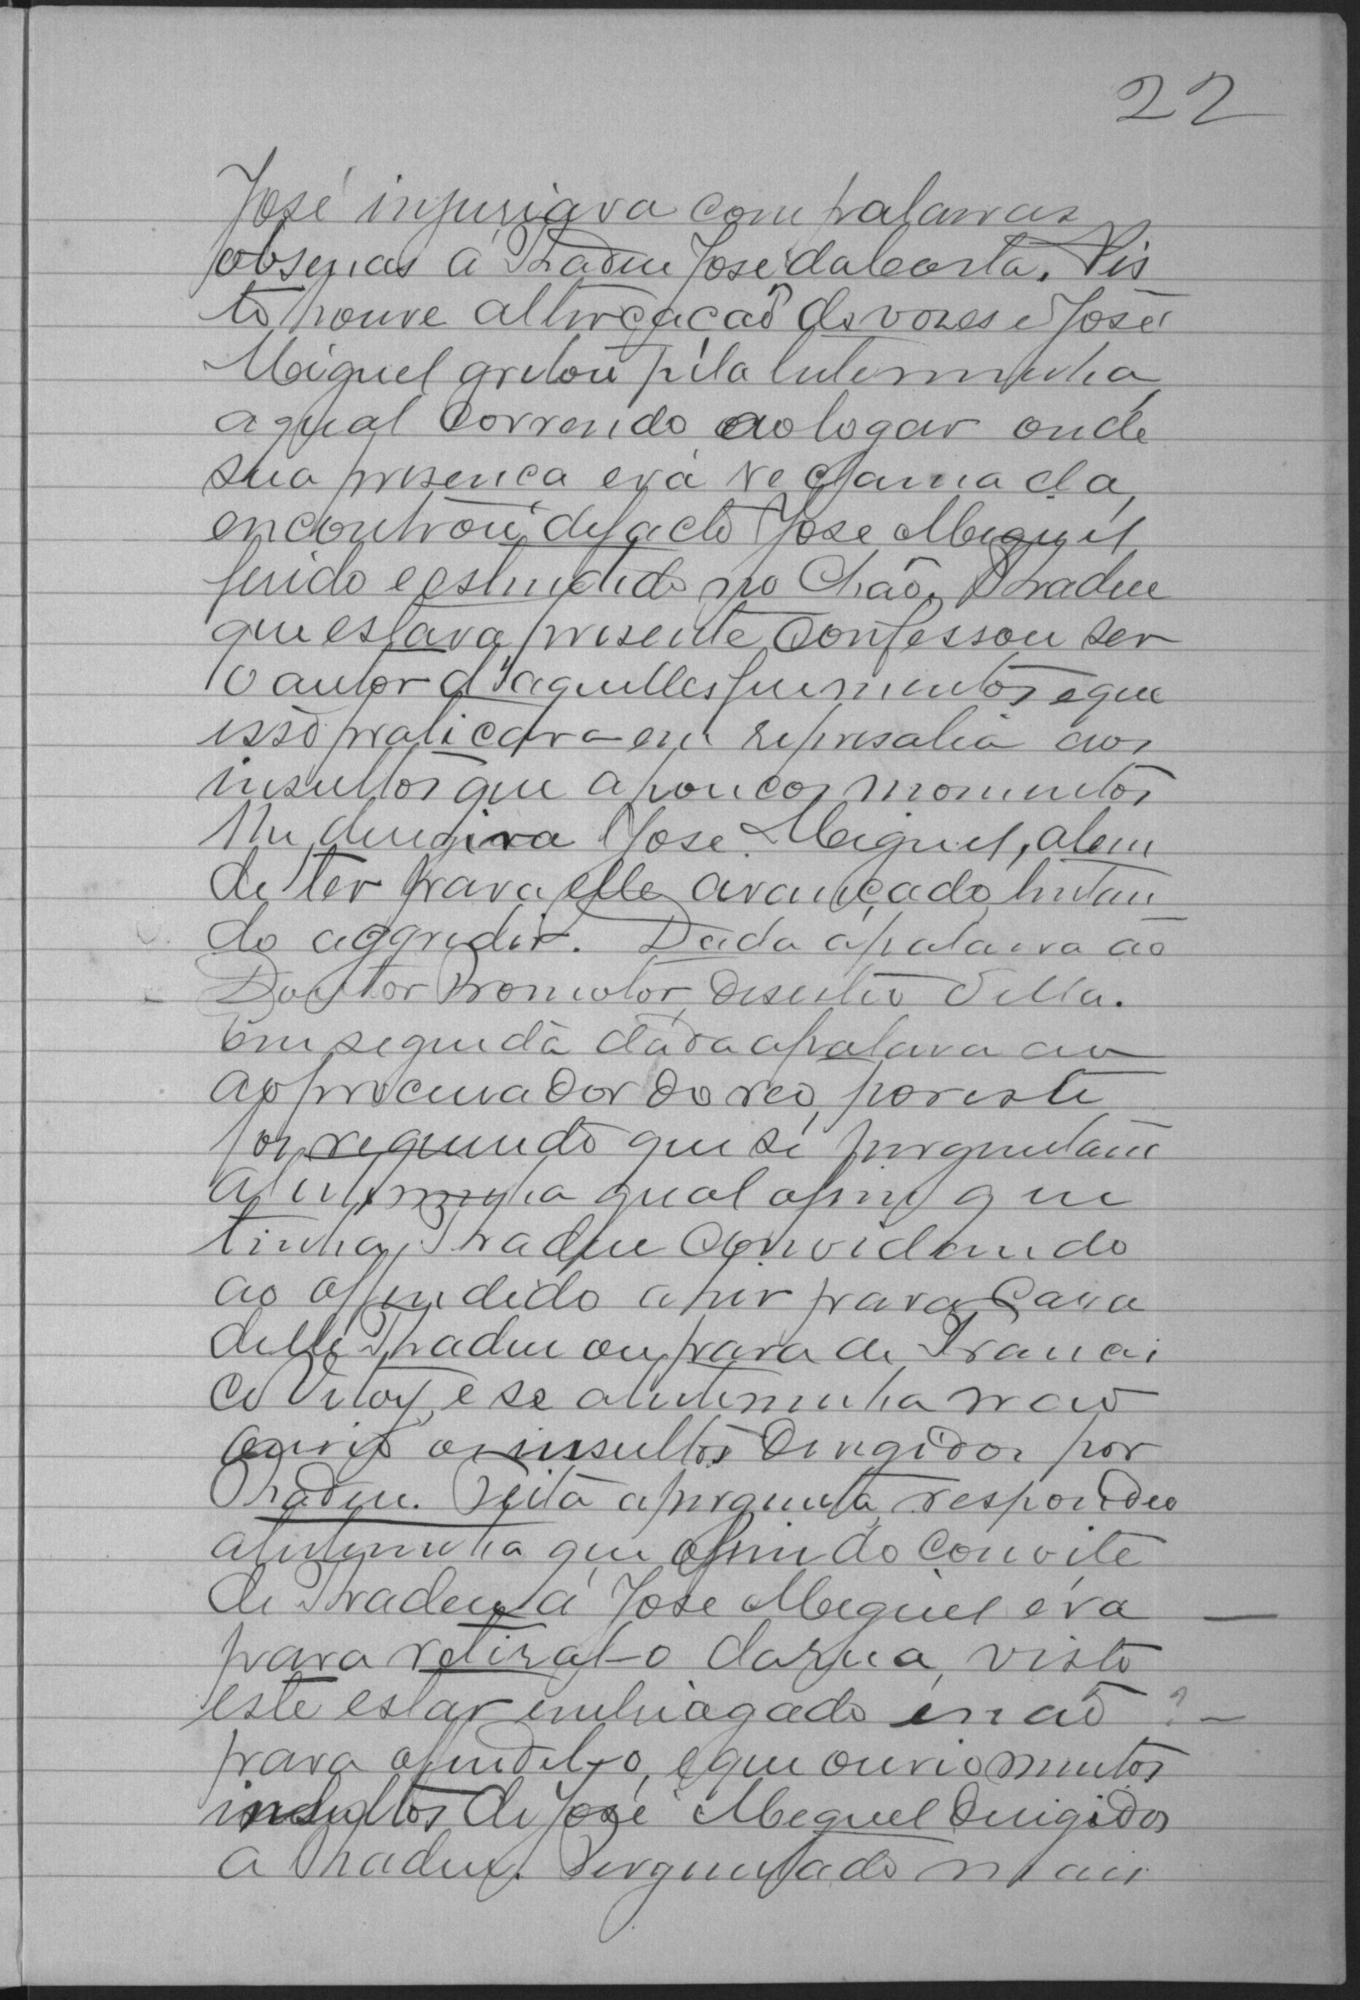 22
José injuriava com palavras
obsenas á Thadeu José da Costa. Nis
to houve altercação de vozes e José
Miguel gritou pela testemunha,
a qual correndo ao logar onde
sua presença era reclamada,
encontrou de facto José Miguel
ferido e estendido no chão. Thadeu
que estava presente confessou ser
o autor d'aquelles ferimentos e que
isso praticara em represalia aos
insultos que a poucos momentos
lhe dirigira José Miguel, alem
de ter para elle avançado, tentan
do aggredir. Dada a palavra ao
Doutor Promotor, desistio della.
Em seguida dada a palavra ao
ao procurador do reo, por este
foi requerido que se perguntasse
a testemunha qual o fim que
tinha Thadeu convidando
ao offendido a hir para casa
delle Thadeu ou para de Franci
co Vitor, e se a testemunha não
ouvio os insultos dirigidos por
Thadeu. Feita a pergunta, respondeo
a testemunha que o fim do convite
de Thadeu á José Miguel era
para retiral-o da rua, visto
este estar embriagado e não
para ofendel-o, e que ouvio muitos
insultos de José Miguel dirigidos
a Thadeu. Perguntado mais